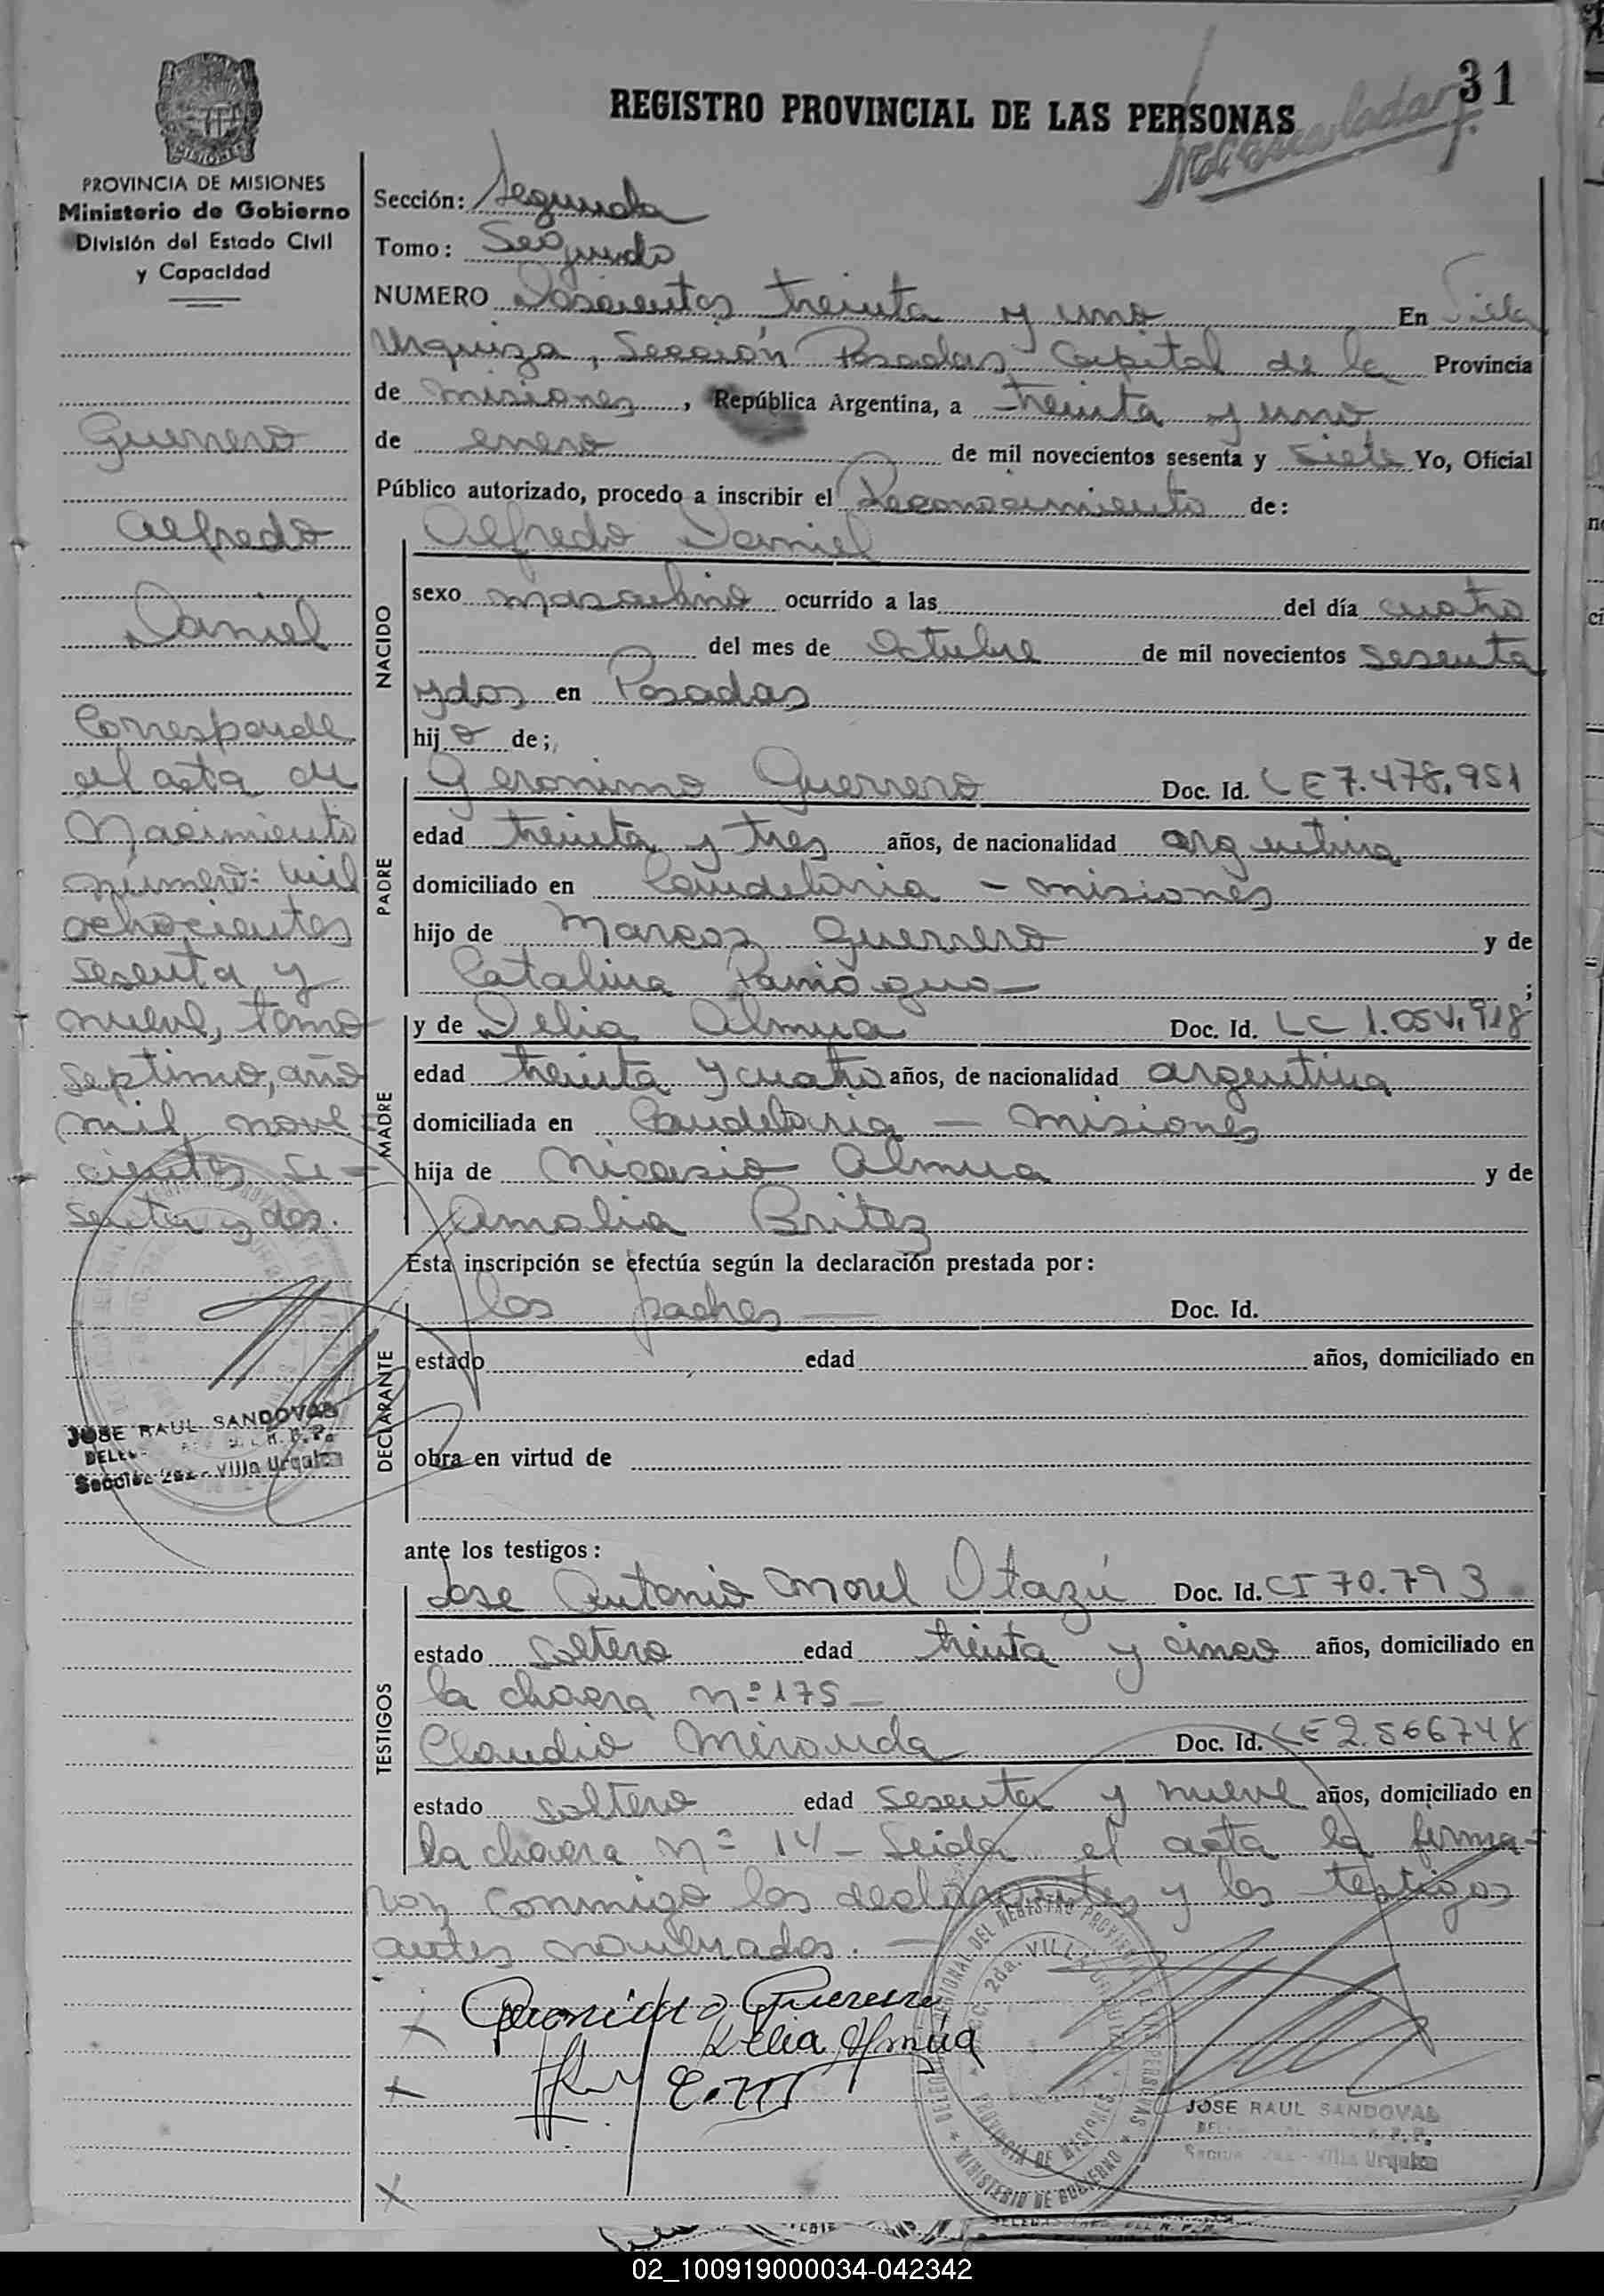 31
REGISTRO PROVINCIAL DE LAS PERSONAS
PROVINCIA DE MISIONES
Ministerio de Gobierno
División del Estado Civil
y Capacidad
Guerrero
Alfredo
Daniel
Corresponde
al acta de
Nacimiento
número: mil
ochocientos
sesenta y
nueve, tomo
septimo, año
mil nove=
cientos se-
senta y dos.
JOSE RAUL SANDOVAL
Sección 2da - Villa Urquiza
Sección: Segunda
Tomo: Segundo
NUMERO Doscientos treinta y uno En Villa
Urquiza, Sección Posadas Capital de la Provincia
de Misiones, República Argentina, a treinta y uno
de enero de mil novecientos sesenta y siete Yo, Oficial
Público autorizado, procedo a inscribir el Reconocimiento de:
NACIDO
Alfredo Daniel
sexo masculino ocurrido a las del día cuatro
del mes de Octubre de mil novecientos sesenta
y dos en Posadas
hijo de;
PADRE
Geronimo Guerrero Doc. Id. LE 7.478.951
edad treinta y tres años, de nacionalidad argentina
domiciliado en Candelaria - Misiones
hijo de Marcos Guerrero y de
Catalina ;
MADRE
y de Delia Almua Doc. Id. LC
edad treinta y cuatro años, de nacionalidad argentina
domiciliada en Candelaria - Misiones
hija de Nicasio Almua y de
Amalia Britez
Esta inscripción se efectúa según la declaración prestada por:
DECLARANTE
los padres — Doc. Id.
estado edad años, domiciliado en
obra en virtud de
ante los testigos:
TESTIGOS
Jose Antonio Morel Otazú Doc. Id. CI 70.793
estado soltero edad treinta y cinco años, domiciliado en
la chacra nº 175 -
Claudio Miranda Doc. Id. LE 2.566748
estado soltero edad sesenta y nueve años, domiciliado en
la chacra nº 14 - Leida el acta la firma=
ron conmigo los declarantes y los testigos
antes nombrados. -
Geronimo Guerrero
Delia Almúa
DELEGACION REGIONAL DEL REGISTRO PROVINCIAL DE LAS PERSONAS
SECC. 2da. VILLA URQUIZA
PROVINCIA DE MISIONES
MINISTERIO DE GOBIERNO
JOSE RAUL SANDOVAL
Villa Urquiza
02_100919000034-042342